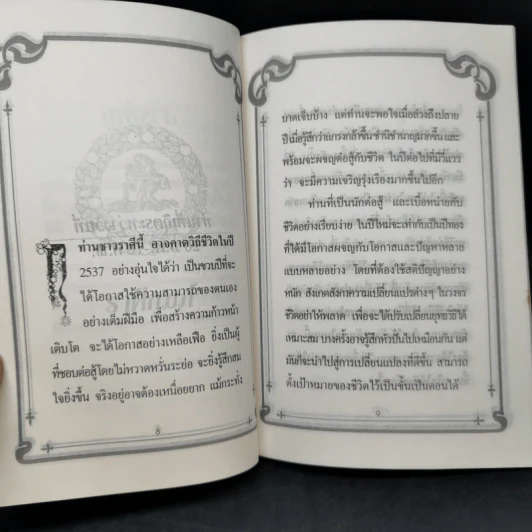 ท่านชาวราศีนี้ อาจคาดวิถีชีวิตในปี
2537 อย่างอุ่นใจได้ว่า เป็นขวบปีที่จะ
ได้โอกาสใช้ความสามารถของตนเอง
อย่างเต็มฝีมือ เพื่อสร้างความก้าวหน้า
เติบโต จะได้โอกาสอย่างเหลือเฟือ ยิ่งเป็นผู้
ที่ชอบต่อสู้โดยไม่หวาดหวั่นระย่อ จะยิ่งรู้สึกสม
ใจยิ่งขึ้น จริงอยู่อาจต้องเหนื่อยยาก แม้กระทั่ง
8
บาดเจ็บบ้าง แต่ท่านจะพอใจเมื่อล่วงถึงปลาย
ปีเมื่อรู้สึกว่าแกร่งกล้าขึ้น ชำนิชำนาญมากขึ้น และ
พร้อมจะผจญต่อสู้กับชีวิต ในปีต่อไปที่มีวี่แวว
ว่า จะมีความเจริญรุ่งเรืองมากขึ้นไปอีก
ท่านที่เป็นนักต่อสู้ และเบื่อหน่ายกับ
ชีวิตอย่างเรียบง่าย ในปีใหม่จะเท่ากับเป็นปีทอง
ที่ได้มีโอกาสผจญกับโอกาสและปัญหาหลาย
แบบหลายอย่าง โดยที่ต้องใช้สติปัญญาอย่าง
หนัก สังเกตสังกาความเปลี่ยนแปรต่างๆ ในวงจร
ชีวิตอย่าให้พลาด เพื่อจะได้ปรับเปลี่ยนยุทธวิธีได้
เหมาะสม บางครั้งอาจรู้สึกหัวปั่นไปเหมือนกัน แต่
มันก็จะนำไปสู่การเปลี่ยนแปลงที่ดีขึ้น สามารถ
ตั้งเป้าหมายของชีวิตไว้เป็นขั้นเป็นตอนได้
9